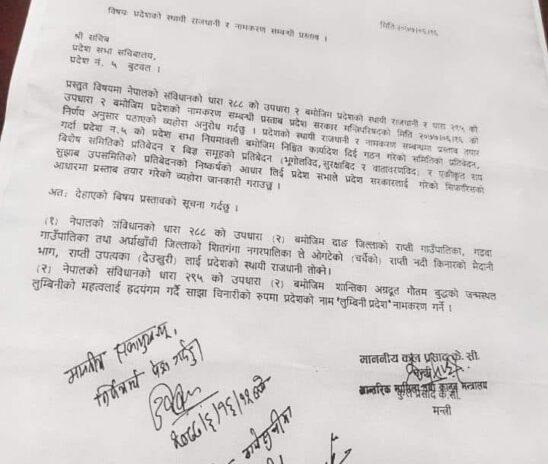 विषयः प्रदेशको स्थायी राजधानी र नामाकरण सम्बन्धी प्रस्ताव ।
मिति-२०७७।०६।१६
श्री सचिव
प्रदेश सभा सचिवालय,
प्रदेश नं. ५ बुटवल ।
प्रस्तुत विषयमा नेपालको संविधानको धारा २८८ को उपधारा २ बमोजिम प्रदेशको स्थायी राजधानी र धारा २९५ को
उपधारा २ बमोजिम प्रदेशको नामकरण सम्बन्धी प्रस्ताव प्रदेश सरकार मन्त्रिपरिषद्को मिति २०७७।०६।१६ को
निर्णय अनुसार पठाएको व्यहोरा अनुरोध गर्दछु । प्रदेशको स्थायी राजधानी र नामकरण सम्बन्धमा प्रस्ताव तयार
गर्दा प्रदेश नं.५ को प्रदेश सभा नियमावली बमोजिम निश्चित कार्यादेश दिई गठन गरेको समितिको प्रतिवेदन,
विशेष समितिको प्रतिवेदन र विज्ञ समूहको प्रतिवेदन (भूगोलविद, सुरक्षाविद र वातावरणविद) र एकीकृत राय
सुझाब उपसमितिको प्रतिवेदनको निष्कर्षको आधार लिई प्रदेश सभाले प्रदेश सरकारलाई गरेको सिफारिसको
आधारमा प्रस्ताव तयार गरेको व्यहोरा जानकारी गराउछु ।
अतः देहाएको बिषय प्रस्तावको सूचना गर्दछु ।
(१) नेपालको संविधानको धारा २८८ को उपधारा (२) बमोजिम दाङ जिल्लाको राप्ती गाउँपालिका, गढवा
गाउँपालिका तथा अर्घाखाँची जिल्लाको शितगंगा नगरपालिका ले ओगटेको (चर्चेको) राप्ती नदी किनारको मैदानी
भाग, राप्ती उपत्यका (देउखुरी) लाई प्रदेशको स्थायी राजधानी तोक्ने।
(२) नेपालको संविधानको धारा २९५ को उपधारा (२) बमोजिम शान्तिका अग्रदूत गौतम बुद्धको जन्मस्थल
लुम्बिनीको महत्वलाई हृदयंगम गर्दै साझा चिनारीको रुपमा प्रदेशको नाम 'लुम्बिनी प्रदेश' नामकरण गर्ने ।
माननीय
निर्णयार्थ पेश गर्दछु।
माननीय कुल प्रसाद के. सी.
आन्तरिक मामिला तथा कानून मन्त्रालय
कुल प्रसाद के.सी.
मन्त्री